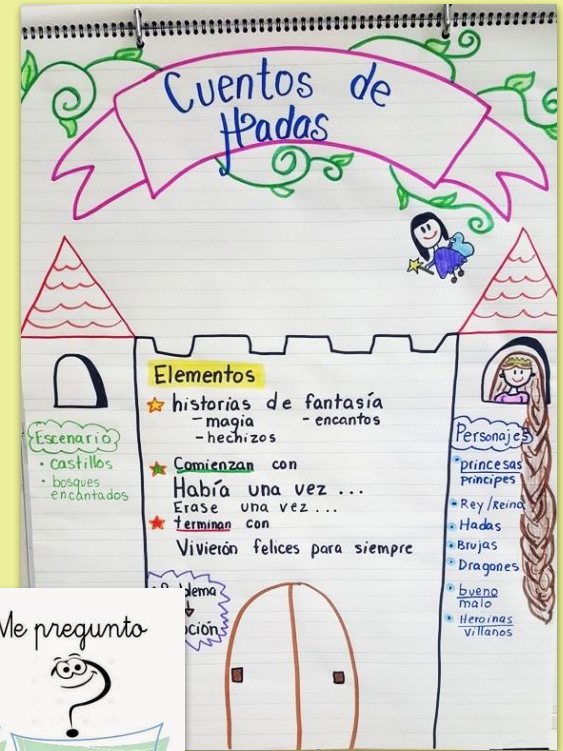 Cuentos de
Hadas
Elementos
historias de fantasía
- magia - encantos
- hechizos
Comienzan con
Había una vez ...
Erase una vez ...
terminan con
Vivierón felices para siempre
Escenario
• castillos
• bosques
encantados
Personajes
• princesas
príncipes
• Rey/Reina
• Hadas
• Brujas
• Dragones
• bueno
malo
• Heroinas
villanos
Me pregunto
?